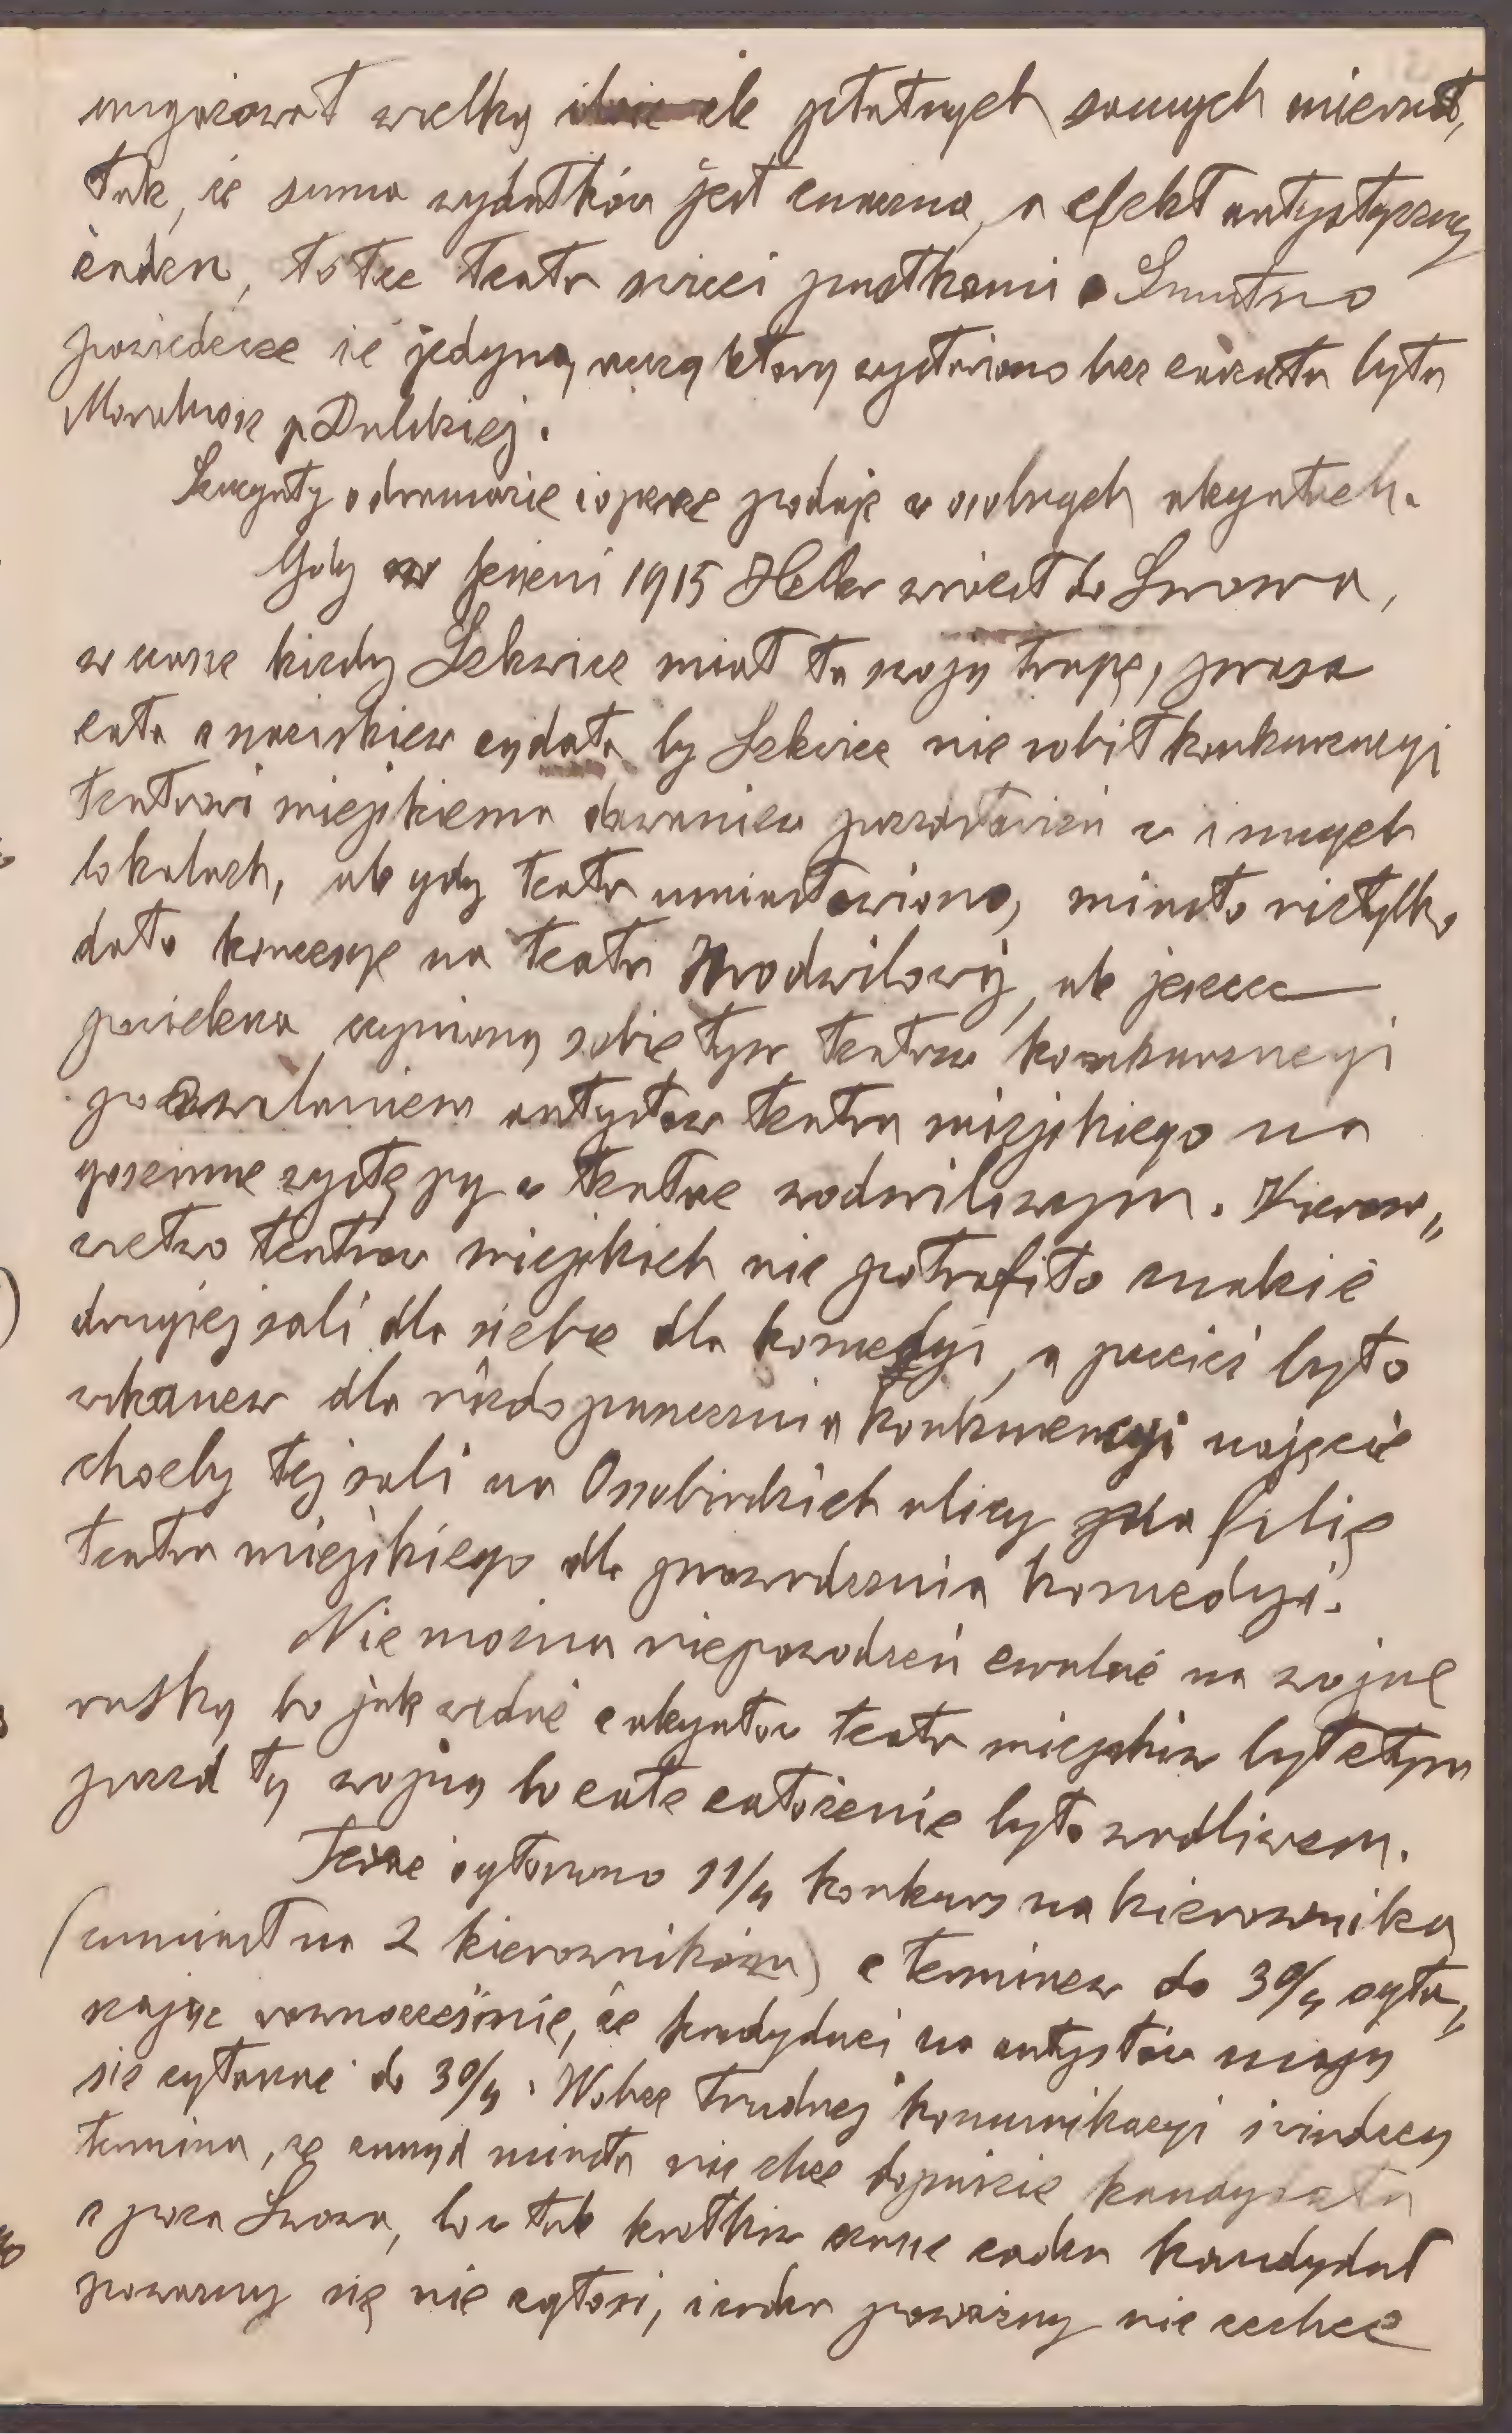 angażował wielką źle płatnych samych miernot,
tak, że suma wydatków jest znaczna, a efekt artystyczny
żaden, to też teatr świeci pustkami. Smutno
powiedzieć że jedyną rzeczą którą wystawiono bez zarzutu była
Moralność p Dulskiej.
Szczegóły o dramacie i operze podaję w osobnych zeszytach.
Gdy w jesieni 1915 Heller wrócił do Lwowa,
w czasie kiedy Lekwicz miał tu swoją trupę, prasa
cała z naciskiem żądała by Lekwicz nie robił konkurencyi
teatrowi miejskiemu dawaniem przedstawień w innych
lokalach, ale gdy teatr umiastowiono, miasto nietylko
dało koncesye na teatr Wodwilowy, ale jeszcze
powiększa czynioną sobie tym teatrem konkurencyi
pozwalaniem artystów teatru miejskiego na
gościnne występy w teatrze wodwilowym. Kierow„
nictwo teatrów miejskich nie potrafiło znaleźć
drugiej sali dla siebie dla komedyi, a przecież było
wskazanem dla niedopuszczenia konkurencyi najęcie
choćby tej sali na Ossolińskich ulicy na filię
teatru miejskiego dla prowadzenia komedyi.
Nie można niepowodzeń zwalać na wojnę
ruską bo jak widać teatr miejski był złym
przed tą wojną bo całe założenie było wadliwem.
Teraz ogłoszono 11/4 konkurs na kierownika
(zamiast na 2 kierowników) z terminem do 30/4 ogła„
szając równocześnie, że kandydaci na artystów mają
się zgłaszać do 30/4. Wobec trudnej komunikacyi i widoczny
termina, że zarząd miasta nie chce dopuścić kandydata
z poza Lwowa, bo w tak krótkim czasie żaden kandydat
poważny się nie zgłosi, i żaden poważny nie zechce